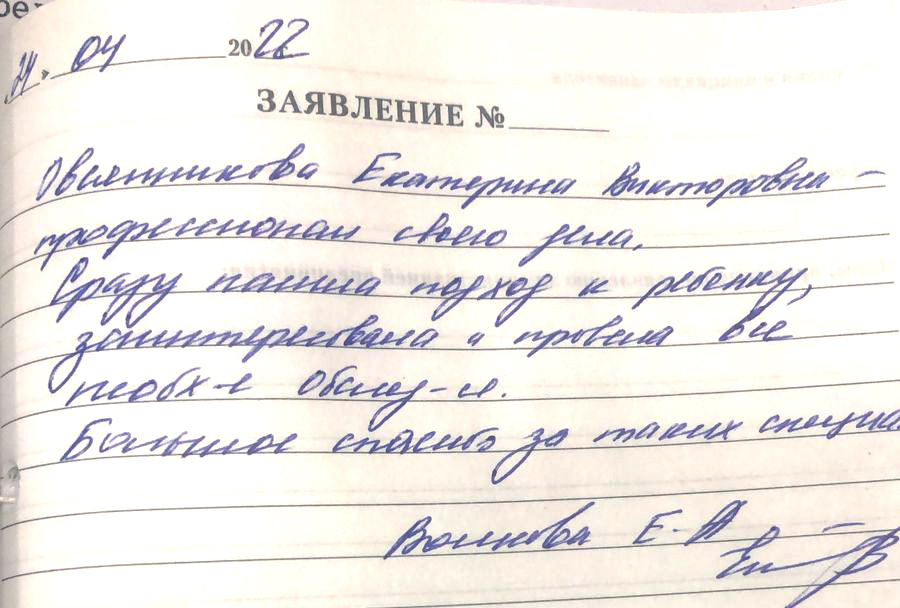 21. 04 2022 г
ЗАЯВЛЕНИЕ №
Овсянникова Екатерина Викторовна –
профессионал своего дела.
Сразу нашла подход к ребенку,
заинтересовала и провела все
необх-е обслед-я.
Большое спасибо за таких специа
Волкова Е. А